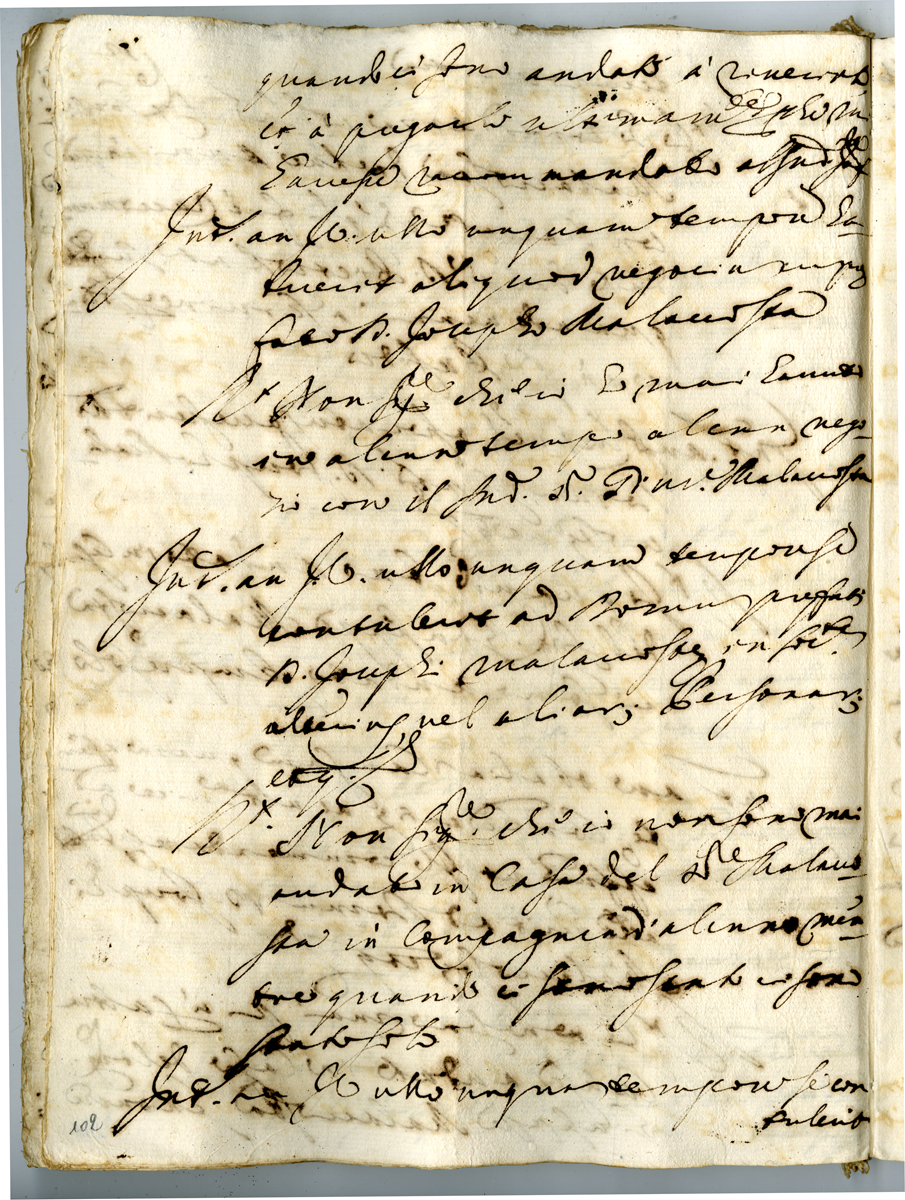 quando ci sono andato à riverirlo
et à pregarlo ultimamte che m'
havesse raccommandato al Sud.
Ints. an ipse ullo unquam tempore ha-
buerit aliquod negocium cum
D. Joseph Malacosta
Rt Non Sige che io ho mai havuto
in alcun tempo alcun nego-
zio con il Sud. Sr. Malacosta
Intus. an ipse ullo unquam tempore se
contulerit ad Domum prefati
D. Joseph Malacosta in
alterius vel aliarum Personarum
et q.
Rt. Non Sige. che io non sono mai
andato in Casa del Sre Malaco-
sta in Compagnia d'alcuno men-
tre quando ci sono stato ci sono
stato solo
Int. an ipse ullo unquam tempore se con
tulerit
102